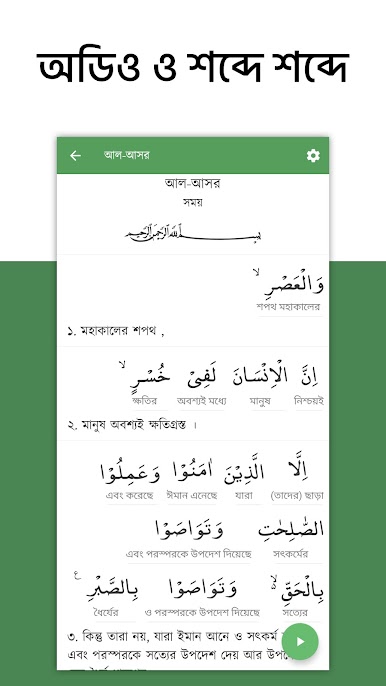 অডিও ও শব্দে শব্দে
আল-আসর
আল-আসর
সময়
بِسْمِ اللهِ الرَّحْمٰنِ الرَّحِيْمِ
وَالْعَصْرِ ۙ
শপথ মহাকালের
১. মহাকালের শপথ ,
اِنَّ الْاِنْسَانَ لَفِىْ خُسْرٍ ۙ
নিশ্চয়ই মানুষ অবশ্যই মধ্যে ক্ষতির
২. মানুষ অবশ্যই ক্ষতিগ্রস্ত ।
اِلَّا الَّذِيْنَ اٰمَنُوْا وَعَمِلُوا
(তাদের) ছাড়া যারা ঈমান এনেছে এবং করেছে
الصّٰلِحٰتِ وَتَوَاصَوْا
সৎকর্মের এবং পরস্পরকে উপদেশ দিয়েছে
بِالْحَقِّ ۙ وَتَوَاصَوْا بِالصَّبْرِ
সত্যের ও পরস্পরকে উপদেশ দিয়েছে ধৈর্যের
৩. কিন্তু তারা নয়, যারা ঈমান আনে ও সৎকর্ম
এবং পরস্পরকে সত্যের উপদেশ দেয় আর